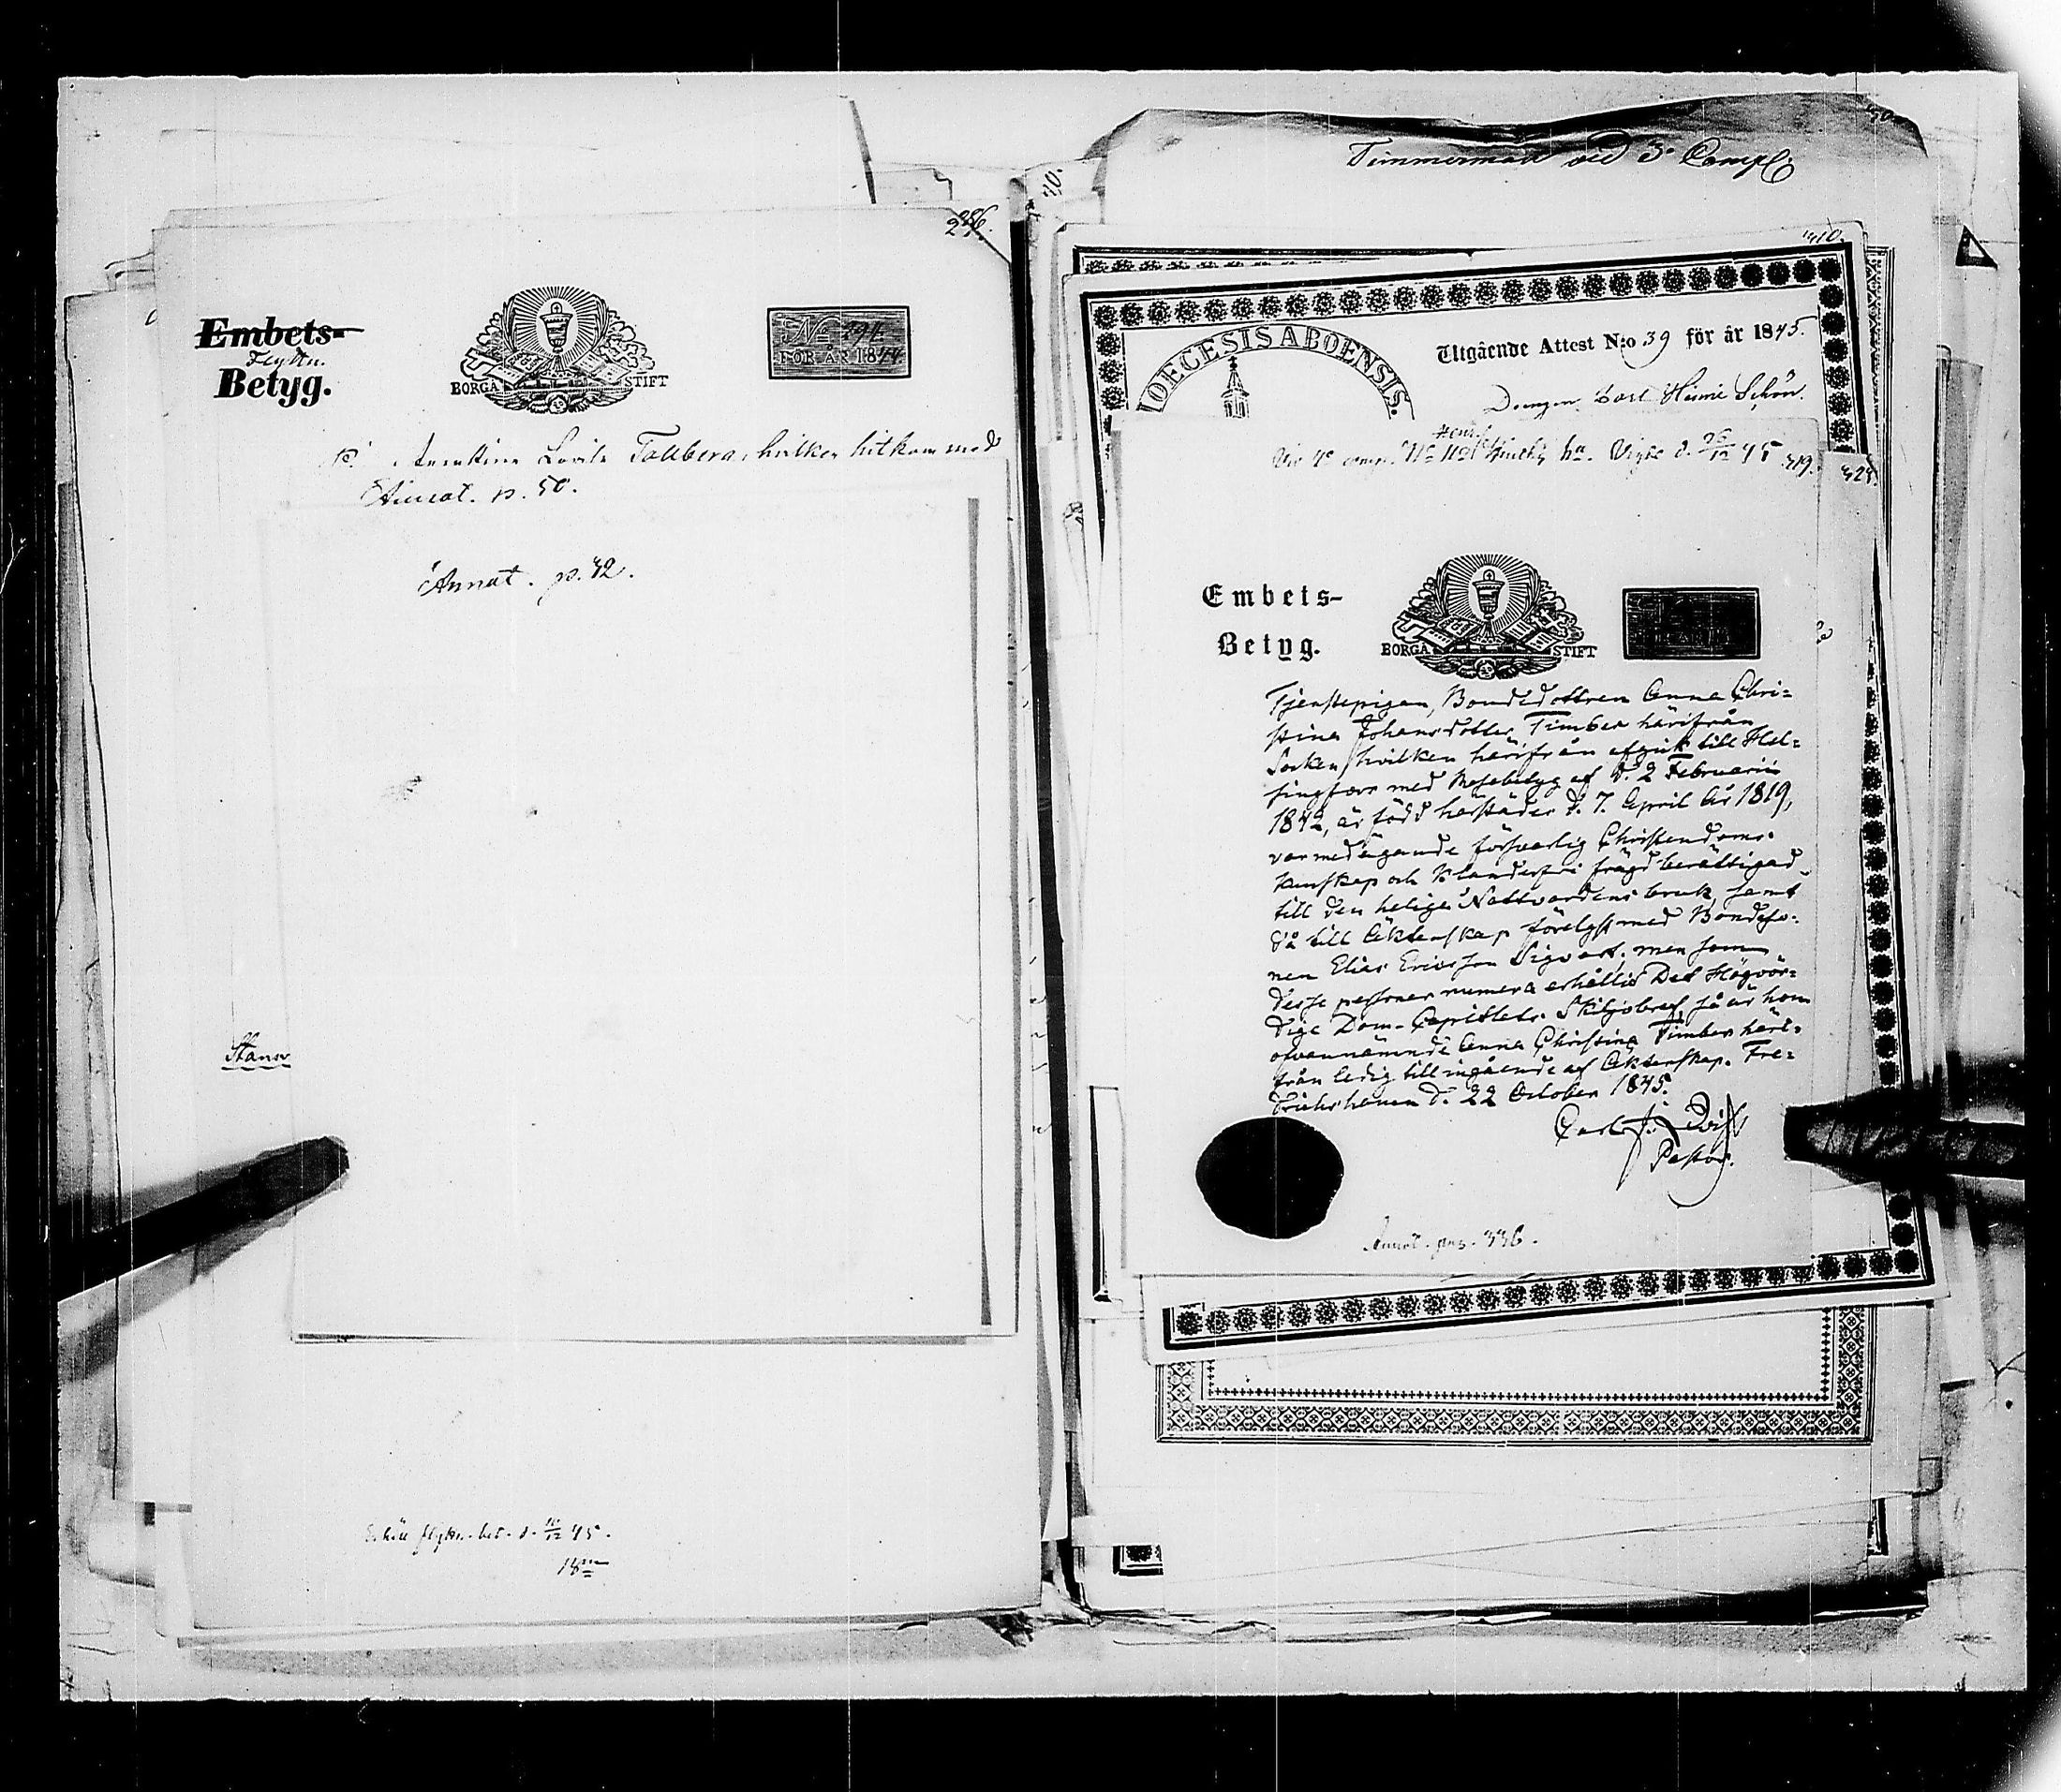 286.
Embets-
Flyttn.
Betyg.
BORGÅ STIFT
No 291.
FÖR ÅR 1844
Lovisa Tallberg, hvilken hitkom med
Annot. p. 50.
Annot. p. 42.
Stanv
flyttn. bet. d. 45.
40.
Timmerman vid 3e Comp.
410.
DIOECESIS ABOENSIS.
Utgående Attest N:o 39 för år 1845.
Drengen Carl Schön.
Vid 4e comp. No Vigde d. 26/12 45 419.
428.
Embets-
Betyg.
BORGÅ STIFT
Tjenstepigan, Bondedottren Anna Chri-
stina Johansdotter Timber härifrån
Socken, hvilken härifrån afgick till Hel-
singfors med Prestbetyg af d. 2 Februarii
1842, är född härstädes d. 7. April År 1819,
var med ägande försvarlig Christendoms-
kunskap och klanderfri frägd berättigad
till den heliga Nattvardens bruk, samt
då till Äktenskap förelyst med Bondeso-
nen Elias Ericsson Sigvart; men som
desse personer numera erhållit Det Högvör-
dige Dom-Capitlets Skiljobref, så är hon
ofvannämnde Anna Christina Timber häri-
från ledig till ingående af Äktenskap. Fre-
drichshamn d. 22 October 1845.
Carl J. Qvist
Pastor.
Annot. pag. 336.